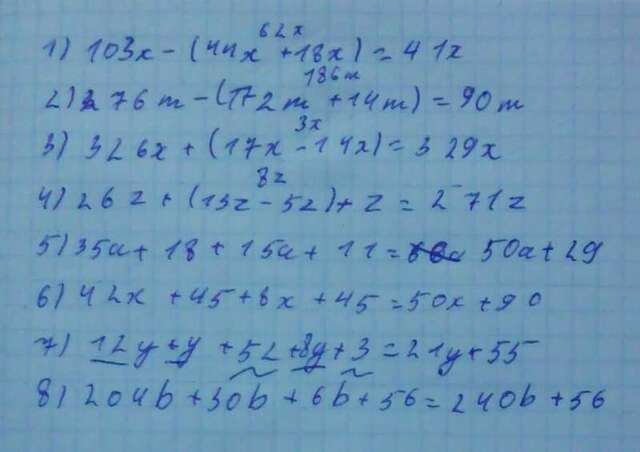 62x
1) 103x - (44x + 18x) = 41x
186m
2) 276m - (172m + 14m) = 90m
3x
3) 326x + (17x - 14x) = 329x
8z
4) 262 + (13z - 5z) + z = 271z
5) 35a + 18 + 15a + 11 = 50a + 29
6) 42x + 45 + 8x + 45 = 50x + 90
7) 12y + y + 52 + 8y + 3 = 21y + 55
8) 204b + 30b + 6b + 56 = 240b + 56